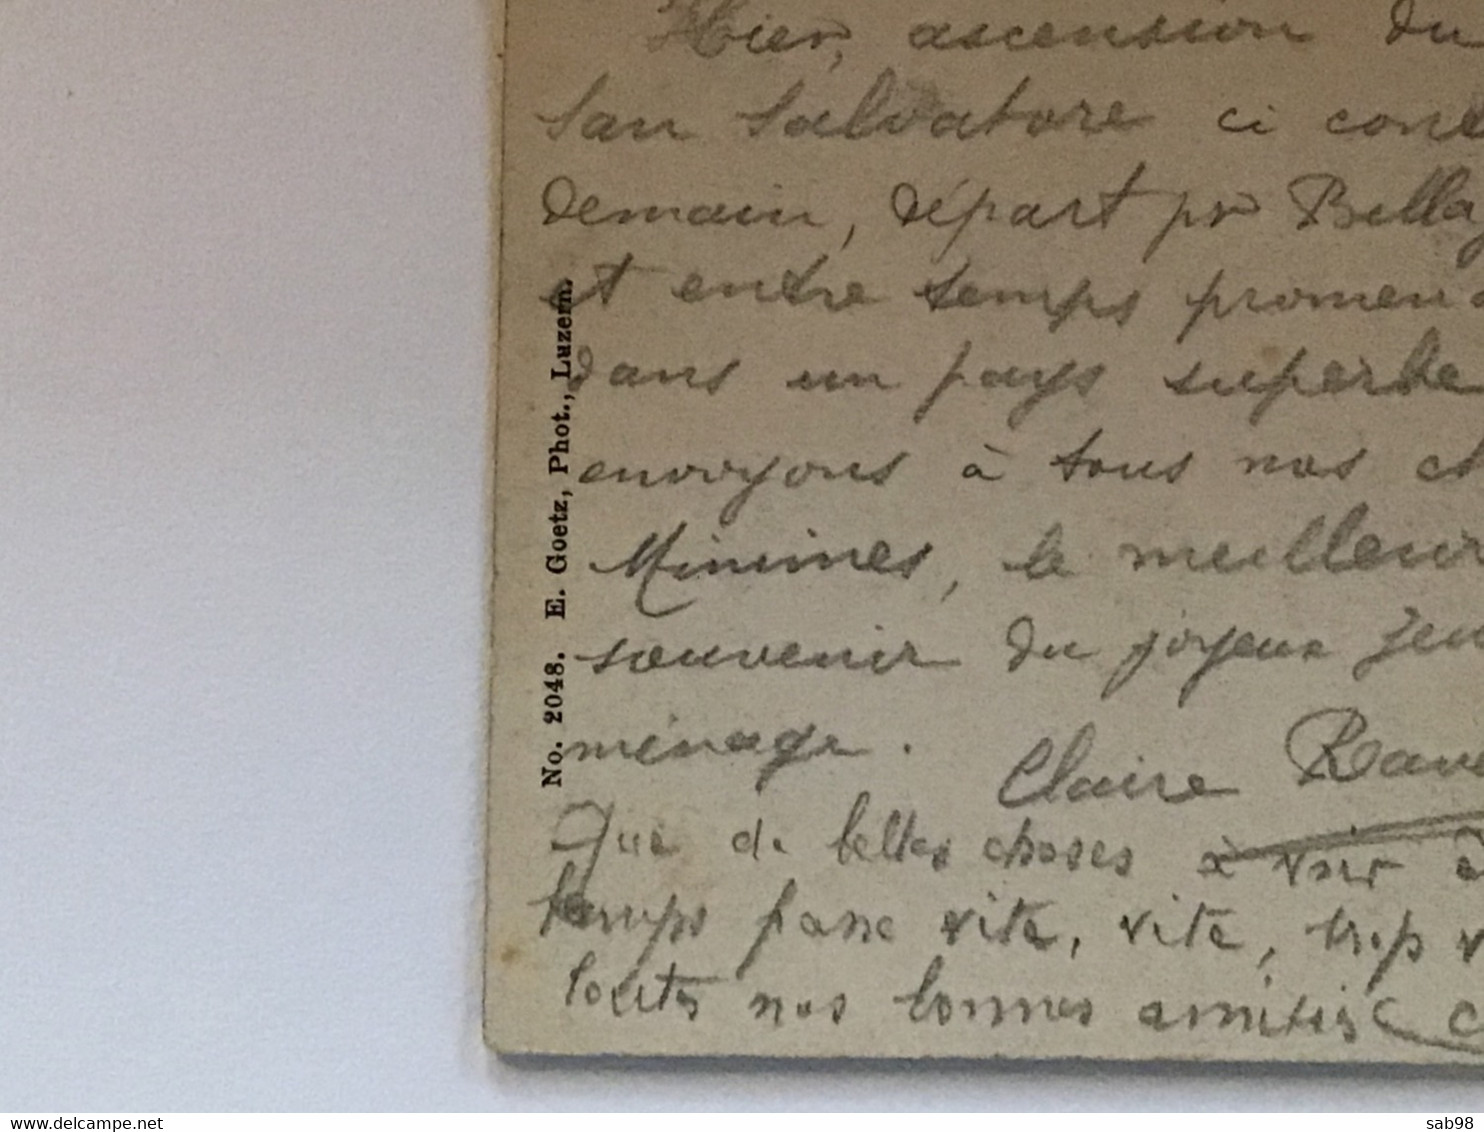 Hier, ascension du
San Salvatore ci con
demain, départ pr Bella
et entre temps promen
dans un pays superbe
envoyons à tous nos ch
Minimes, le meilleur
souvenir du joyeux jeu
ménage.
Claire Rav
Que de belles choses à voir
temps passe vite, vite, trop v
toutes nos bonnes amitiés
No. 2048. E. Goetz, Phot., Luzern.
delcampe.net
sab98